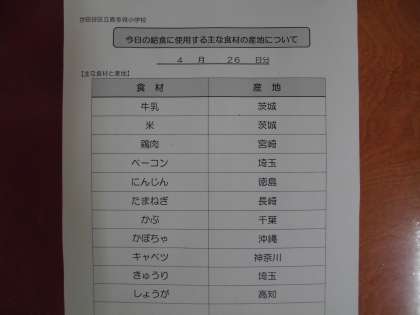 世田谷区立喜多見小学校
今日の給食に使用する主な食材の産地について
4 月 26 日分
【主な食材と産地】
食 材 産 地
牛乳 茨城
米 茨城
鶏肉 宮崎
ベーコン 埼玉
にんじん 徳島
たまねぎ 長崎
かぶ 千葉
かぼちゃ 沖縄
キャベツ 神奈川
きゅうり 埼玉
しょうが 高知